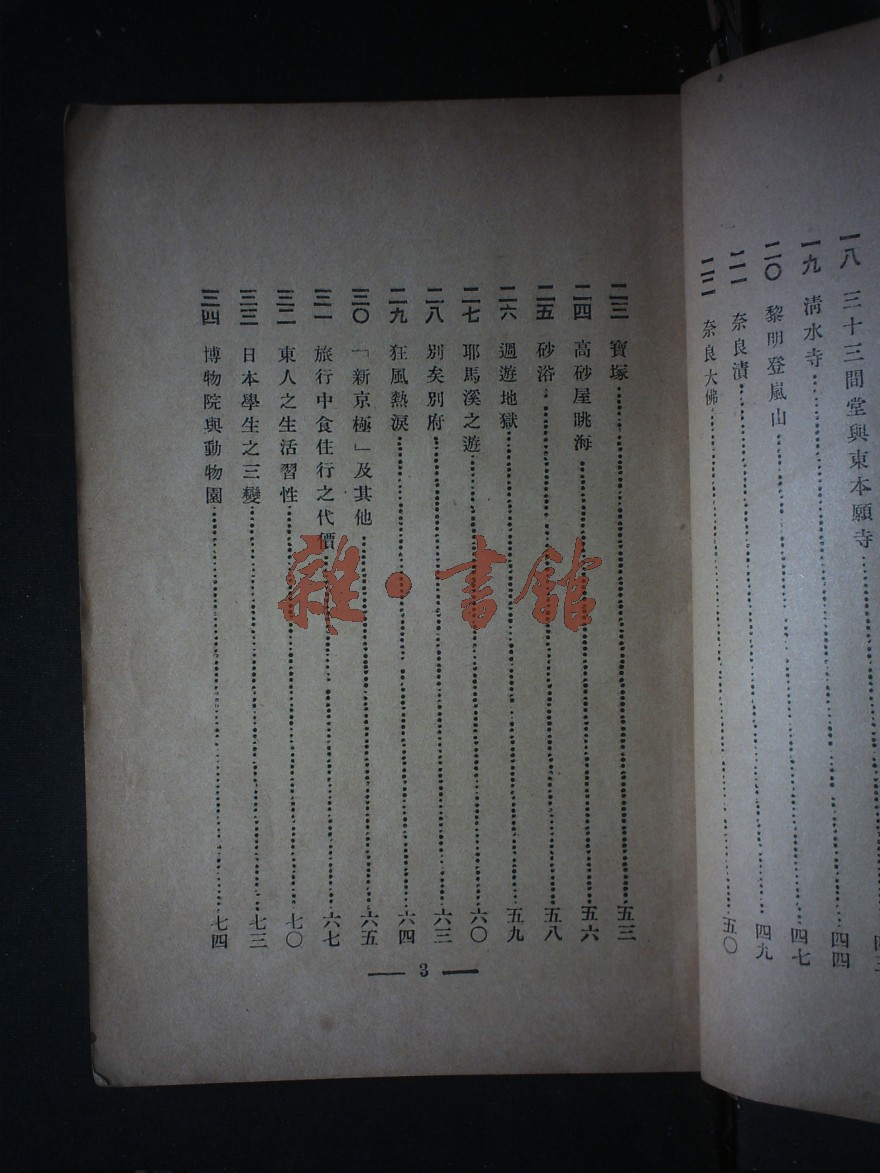 一八 三十三間堂與東本願寺……四四
一九 清水寺……四七
二〇 黎明登嵐山……四九
二一 奈良漬……五〇
二二 奈良大佛
二三 寶塚……五三
二四 高砂屋眺海……五六
二五 砂浴……五八
二六 週遊地獄……五九
二七 耶馬溪之遊……六〇
二八 別矣別府……六三
二九 狂風熱淚……六四
三〇 「新京極」及其他……六五
三一 旅行中食住行之代價……六七
三二 東人之生活習性……七〇
三三 日本學生之三變……七三
三四 博物院與動物園……七四
3
雜·書館